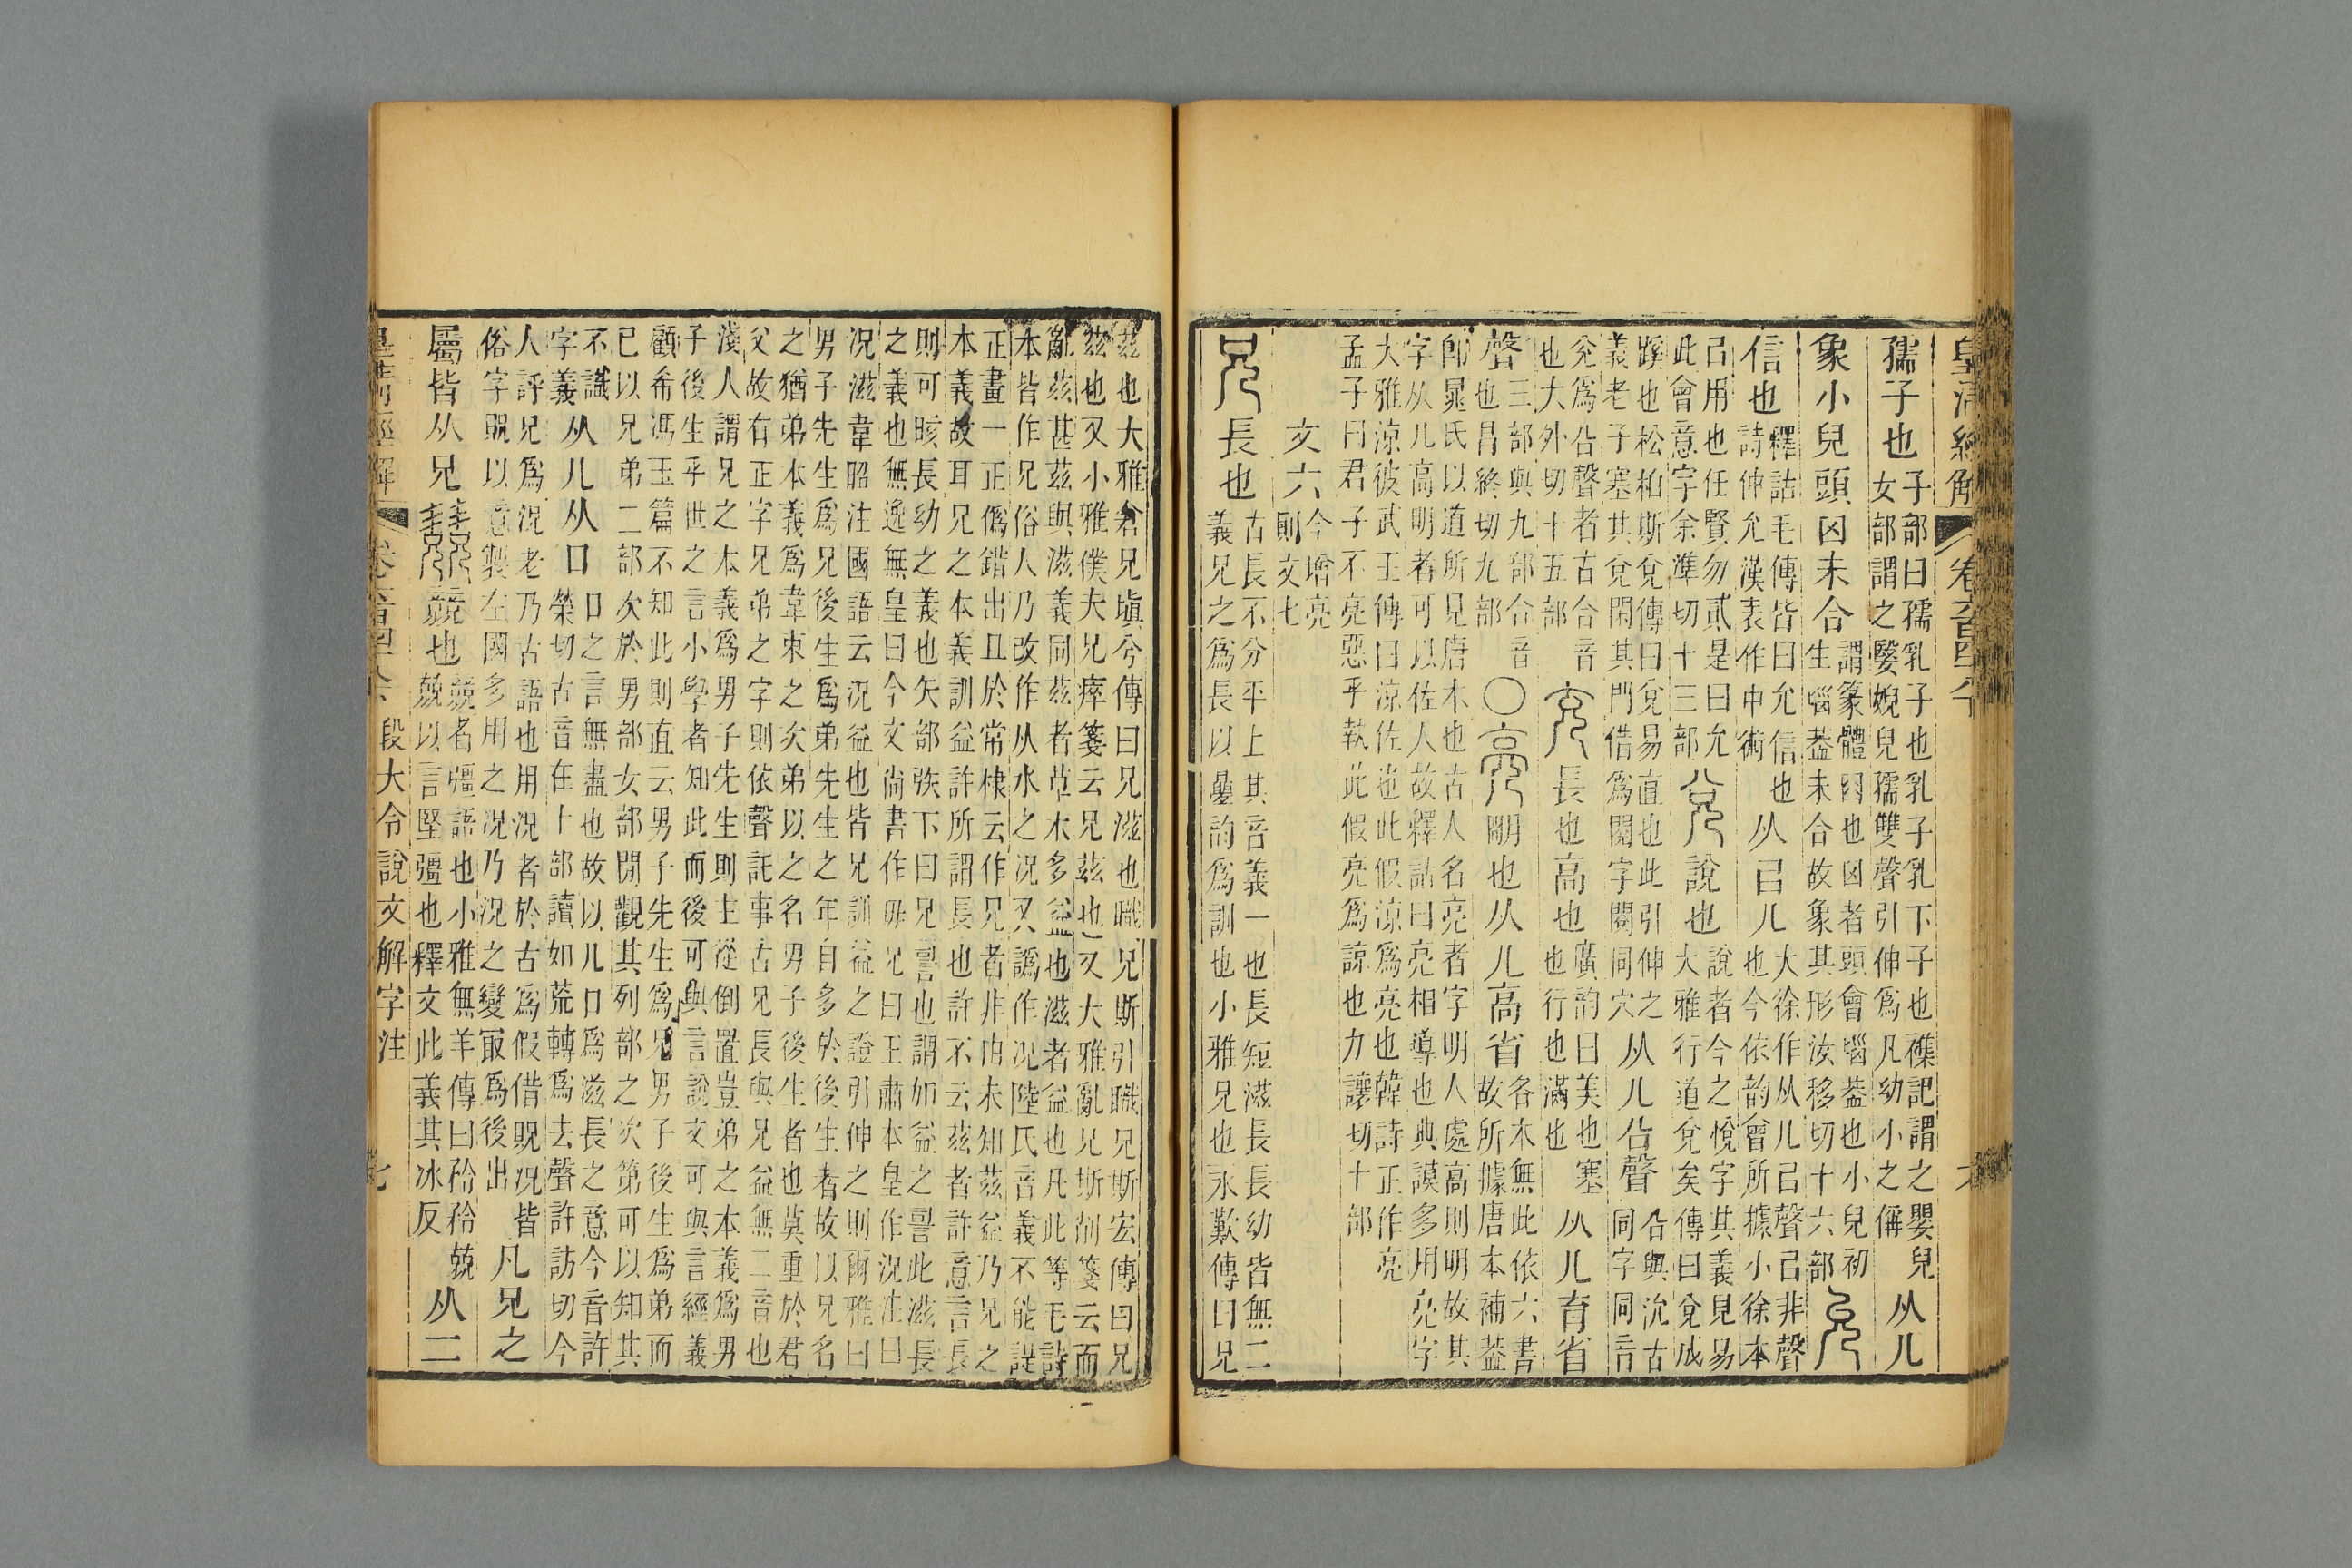 皇清經解 卷六百四十八 六
孺子也 子部曰孺乳子也乳子乳下子也襍記謂之嬰兒
女部謂之嫛婗兒孺雙聲引伸爲凡幼小之偁 从儿
象小兒頭囟未合 謂篆體囟也囟者頭會𡿺葢也小兒初
生𡿺葢未合故象其形汝移切十六部 允
信也 釋詁毛傳皆曰允信也
詩仲允漢表作中術 从㠯儿 大徐作从儿㠯聲㠯非聲
也今依韵會所據小徐本
㠯用也任賢勿貳是曰允
此會意字余準切十三部 兌 說也 說者今之悅字其義見易
大雅行道兌矣傳曰兌成
蹊也松柏斯兌傳曰兌易直也此引伸之
義老子塞其兌閉其門借爲閱字閱同穴 从儿㕣聲 㕣與沇古
同字同音
兌爲㕣聲者古合音
也大外切十五部 充 長也高也 廣韵曰美也塞
也行也滿也 从儿育省
聲 三部與九部合音
也昌終切九部 ○亮 朙也从儿高省 各本無此依六書
故所據唐本補葢
卽晁氏以道所見唐本也古人名亮者字明人處高則明故其
字从儿高明者可以佐人故釋詁曰亮相導也典謨多用亮字
大雅涼彼武王傳曰涼佐也此假涼爲亮也韓詩正作亮
孟子曰君子不亮惡乎執此假亮爲諒也力讓切十部
文六 今增亮
則文七
兄 長也 古長不分平上其音義一也長短滋長長幼皆無二
義兄之爲長以曡韵爲訓也小雅兄也永歎傳曰兄
茲也大雅倉兄塡兮傳曰兄滋也職兄斯引職兄斯宏傳曰兄
茲也又小雅僕夫兄瘁箋云兄茲也又大雅亂兄斯削箋云而
亂茲甚茲與滋義同茲者草木多益也滋者益也凡此等毛詩
本皆作兄俗人乃改作从水之况又譌作况陸氏音義不能諟
正畫一正僞錯出且於常棣云作兄者非由未知茲益乃兄之
本義故耳兄之本義訓益許所謂長也許不云茲者許意言長
則可晐長幼之義也矢部矤下曰兄䛐也謂加益之䛐此滋長
之義也無逸無皇曰今文尙書作毋兄曰王肅本皇作況注曰
况滋韋昭注國語云况益也皆兄訓益之證引伸之則爾雅曰
男子先生爲兄後生爲弟先生之年自多於後生者故以兄名
之猶弟本義爲韋束之次弟以之名男子後生者也莫重於君
父故有正字兄弟之字則依聲託事古兄長與兄益無二音也
淺人謂兄之本義爲男子先生則主從倒置豈弟之本義爲男
子後生乎世之言小學者知此而後可與言說文可與言經義
顧希馮玉篇不知此則直云男子先生爲兄男子後生爲弟而
已以兄弟二部次於男部女部閒觀其列部之次第可以知其
不識
字義 从儿从口 口之言無盡也故以儿口爲滋長之意今音許
榮切古音在十部讀如荒轉爲去聲許訪切今
人評兄爲况老乃古語也用况者於古爲假借貺况皆
俗字貺以意製左國多用之况乃况之變冣爲後出 凡兄之
屬皆从兄 兢 競也 競者彊語也小雅無羊傳曰矜矜兢
兢以言堅彊也釋文此義其冰反 从二
皇清經解 卷六百四十八 段大令說文解字注 七